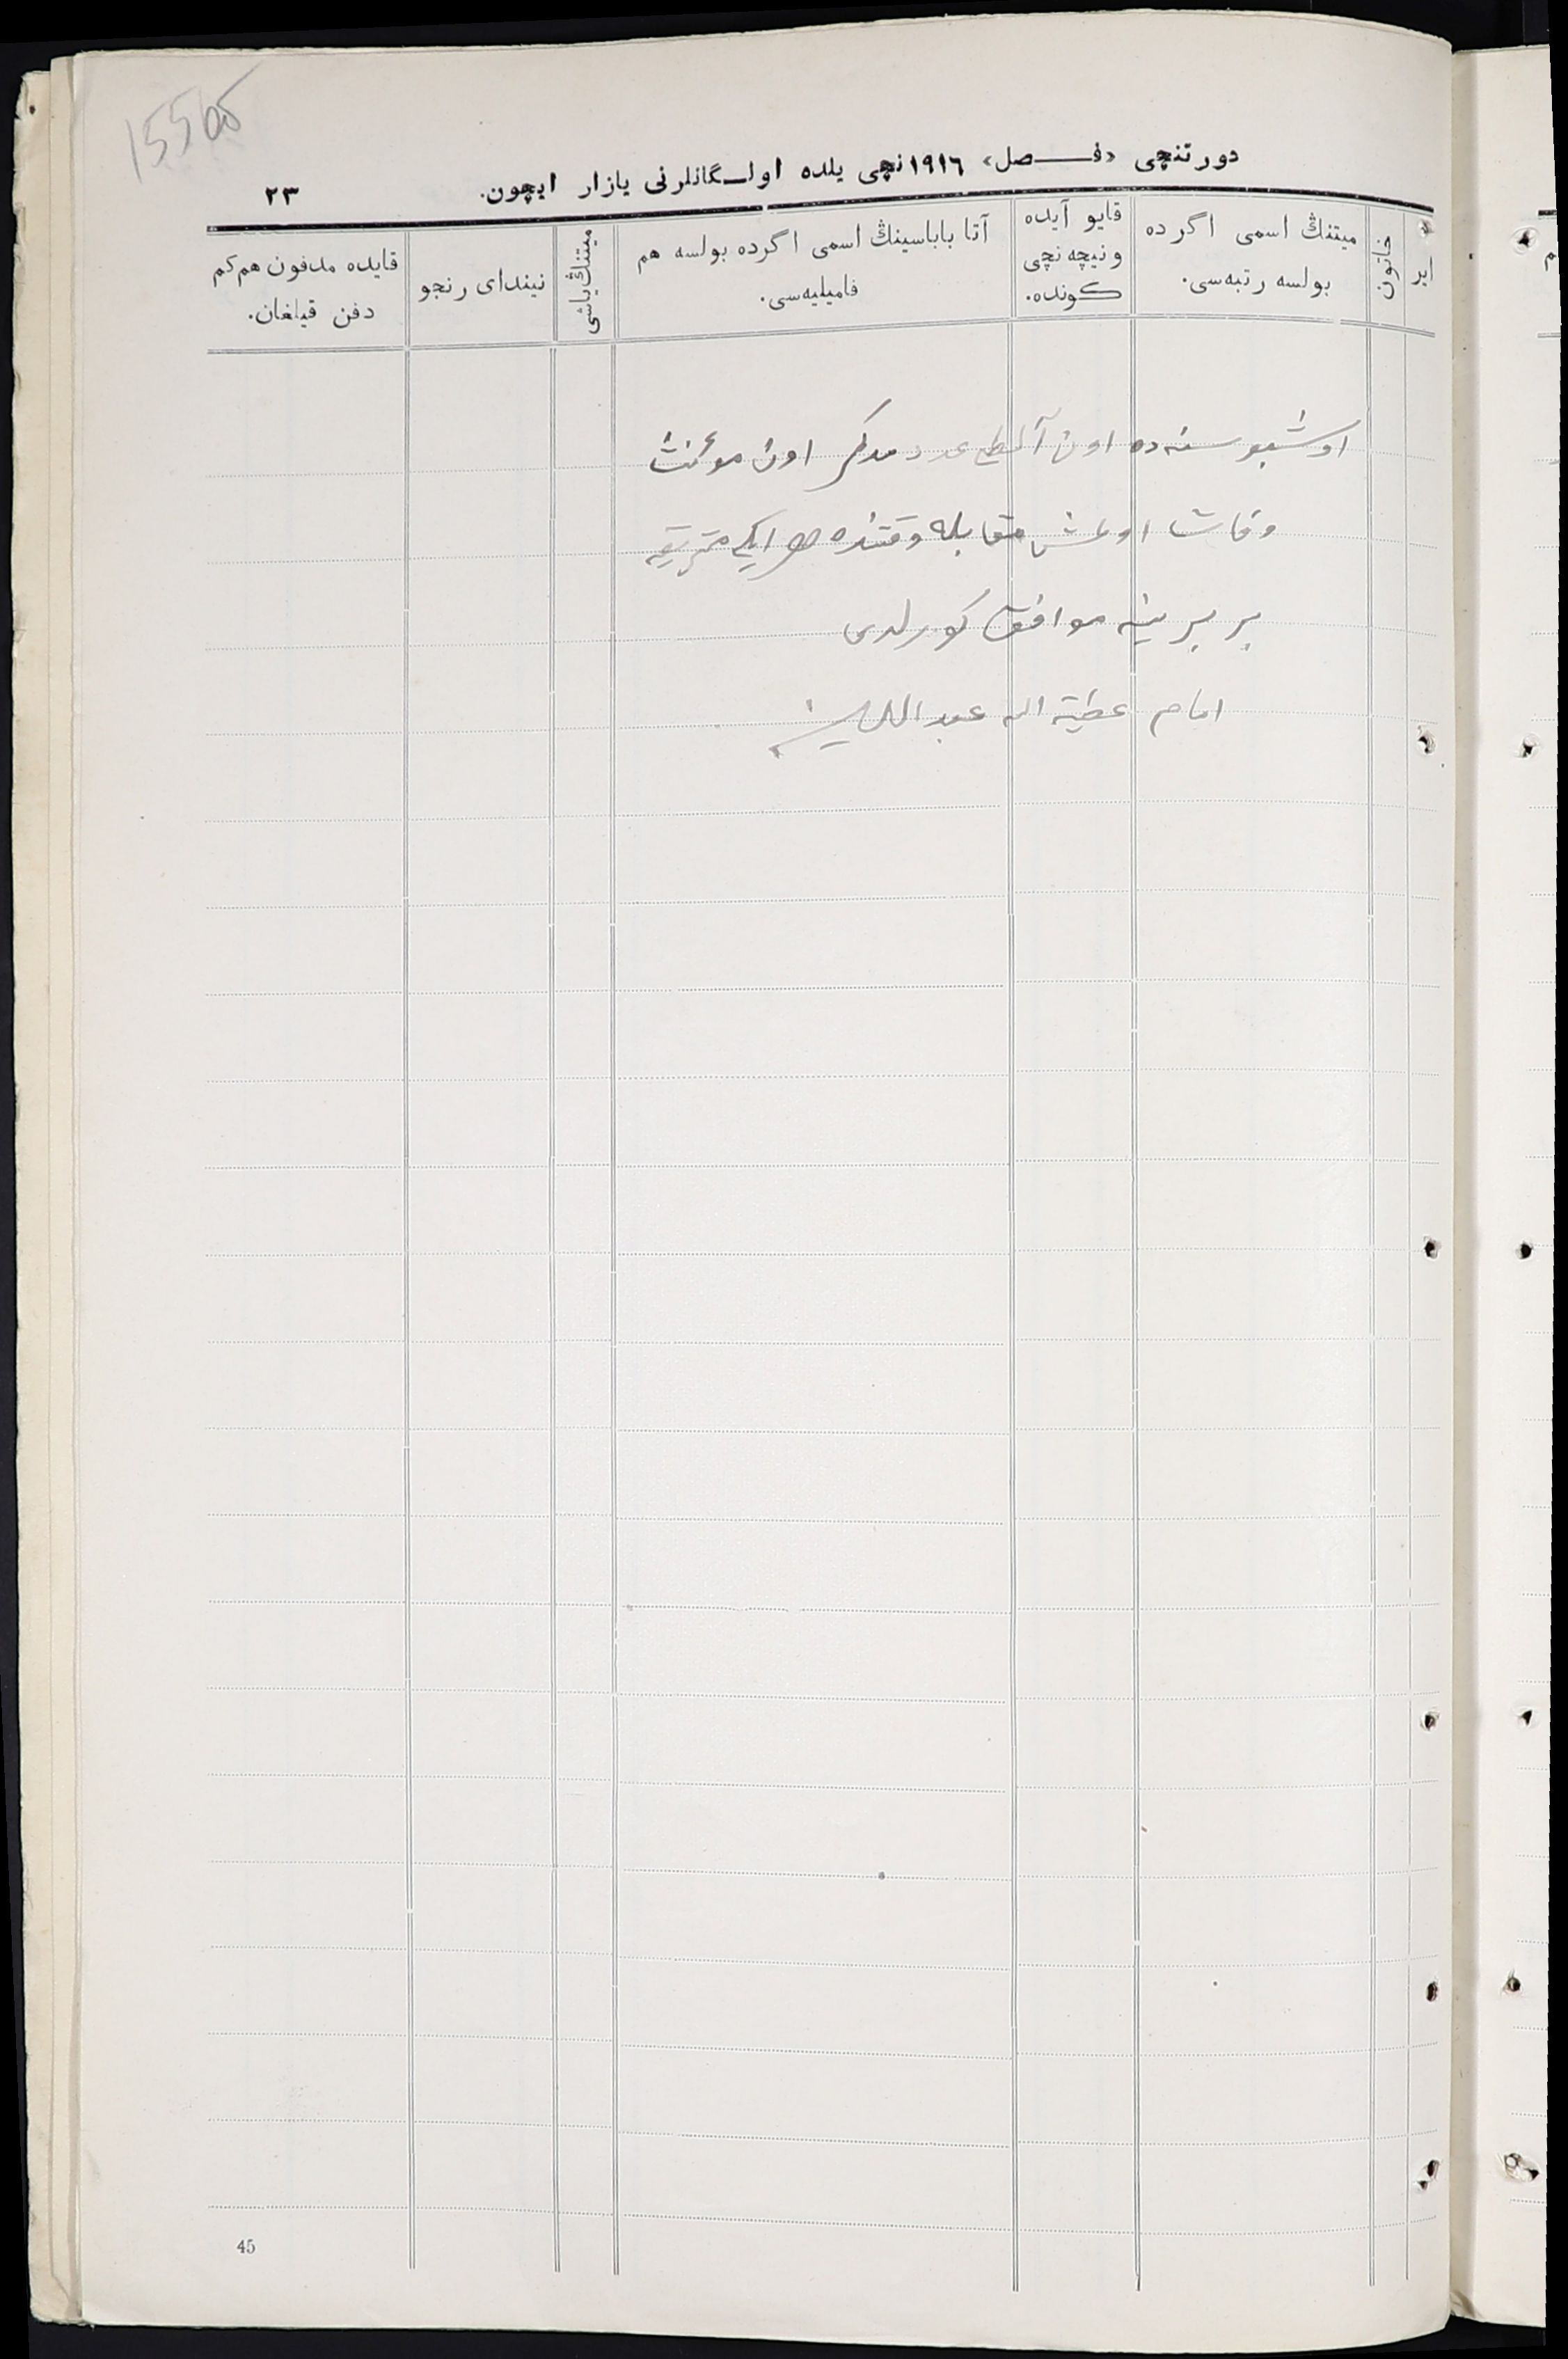 15505
دورتنچی «فـــصل» ١٩١٦نچی یلده اولـگانلرنی یازار ایچون.
٢٣
ایر
خاتون
میتنڭ اسمی اگرده
بولسه رتبه‌سی.
قایو آیده
ونیچه نچی
کونده.
آتا باباسینڭ اسمی اگرده بولسه هم
فامیلیه‌سی.
میتنڭ یاشی
نیندای رنجو
قایده مدفون هم کم
دفن قیلغان.
اوشبو سنه ده اون آلطی عدد مذکر اون موئنث
وفات اولمش مقابله وقتنده هر ایکی
بر برینه موافق کورلدی
امام عطیة الله
45